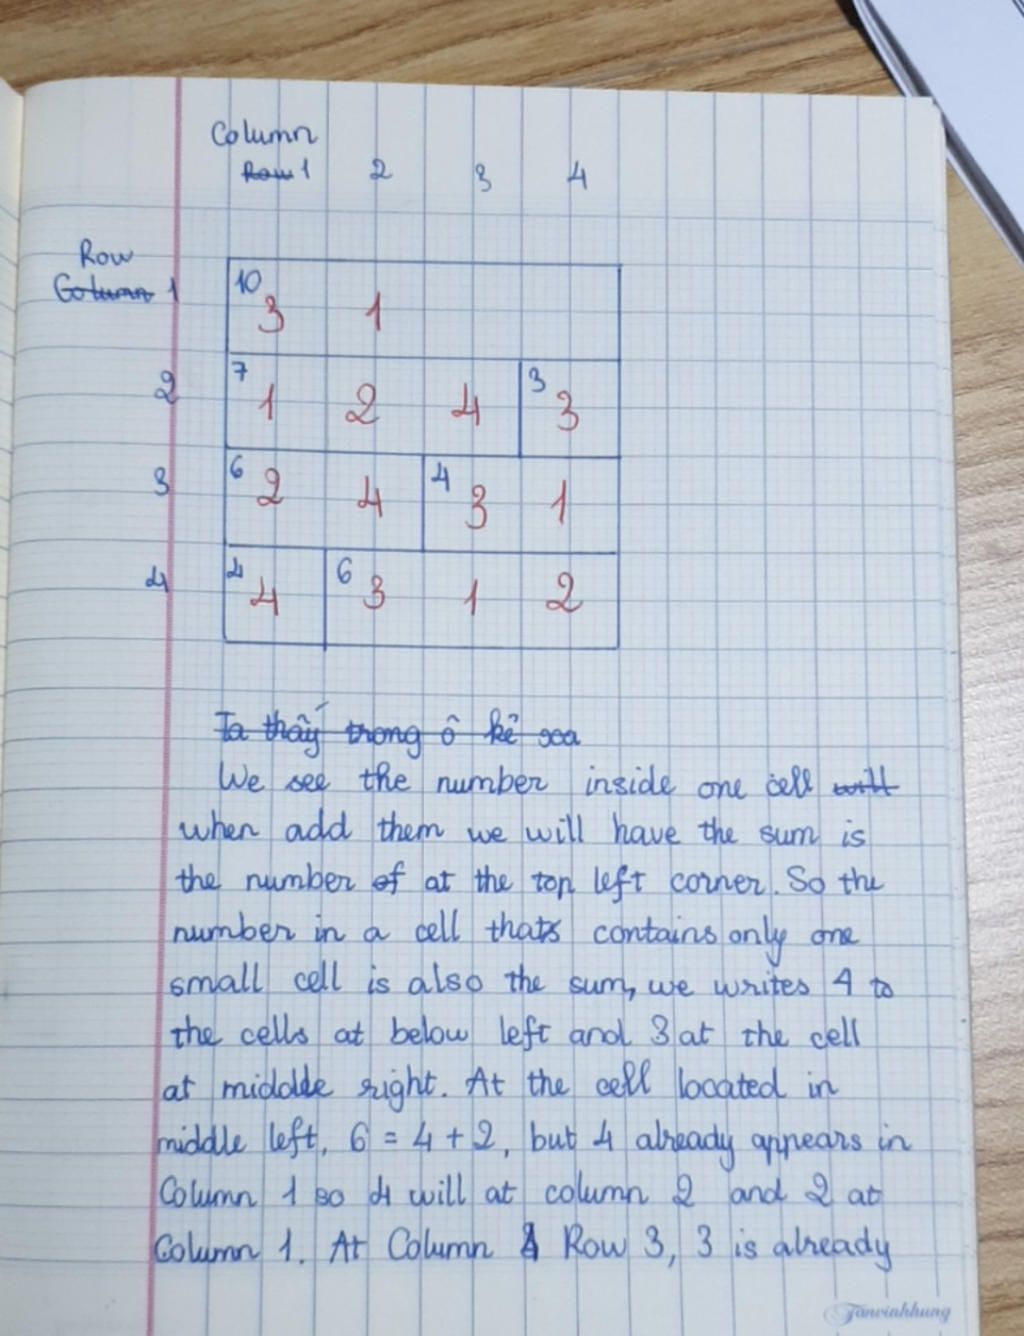 Column
Row 1 2 3 4
Row
Column 1
10 3 1
2 7 1 2 4 3 3
3 6 2 4 4 3 1
4 4 4 6 3 1 2
Ta thấy trong ô kẻ xoa
We see the number inside one cell will
when add them we will have the sum is
the number of at the top left corner. So the
number in a cell thats contains only one
small cell is also the sum, we writes 4 to
the cells at below left and 3 at the cell
at middle right. At the cell located in
middle left, 6 = 4 + 2, but 4 already appears in
Column 1 so 4 will at column 2 and 2 at
Column 1. At Column 4 Row 3, 3 is already
Tanvinhhung